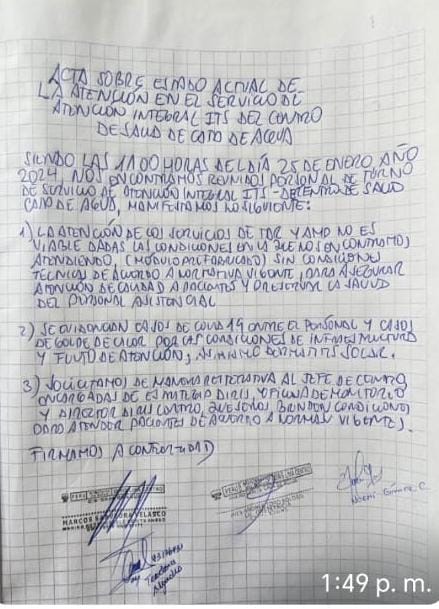 ACTA SOBRE ESTADO ACTUAL DE
LA ATENCION EN EL SERVICIO DE
ATENCION INTEGRAL ITS DEL CENTRO
DE SALUD DE CATO DE AGUA
SIENDO LAS 11:00 HORAS DEL DÍA 25 DE ENERO, AÑO
2024, NOS ENCONTRAMOS REUNIDOS PERSONAL DE TURNO
DE SERVICIO DE ATENCION INTEGRAL ITS - DE CENTRO DE SALUD
CAÑO DE AGUA, MANIFESTAMOS LO SIGUIENTE:
1) LA ATENCION DE LOS SERVICIOS DE TAR Y AMP NO ES
VIABLE DADAS LAS CONDICIONES EN LA QUE NOS ENCONTRAMOS
ATENDIENDO, (MODULO PREFABRICADO) SIN CONDICIONES
TECNICAS DE ACUERDO A NORMATIVA VIGENTE, PARA ASEGURAR
ATENCION DE CALIDAD A PACIENTES Y PRESERVAR LA SALUD
DEL PERSONAL ASISTENCIAL
2) SE EVIDENCIAN CASOS DE COVID 19 ENTRE EL PERSONAL Y CASOS
DE GOLPE DE CALOR POR LAS CONDICIONES DE INFRAESTRUCTURA
Y PUNTO DE ATENCION, ASI MISMO DERMATITIS SOLAR.
3) SOLICITAMOS DE MANERA REITERATIVA AL JEFE DE CENTRO,
ENCARGADAS DE ESTRATEGIA DIRIS, OFICINA DE MONITOREO
Y DIRECTOR DIRIS CENTRO, QUE SE NOS BRINDEN CONDICIONES
PARA ATENDER PACIENTES DE ACUERDO A NORMAS VIGENTES.
FIRMAMOS A CONFORMIDAD
PERÚ
MARCOS VELASCO
PERÚ
Teodora
Noemi Gómez C.
1:49 p. m.